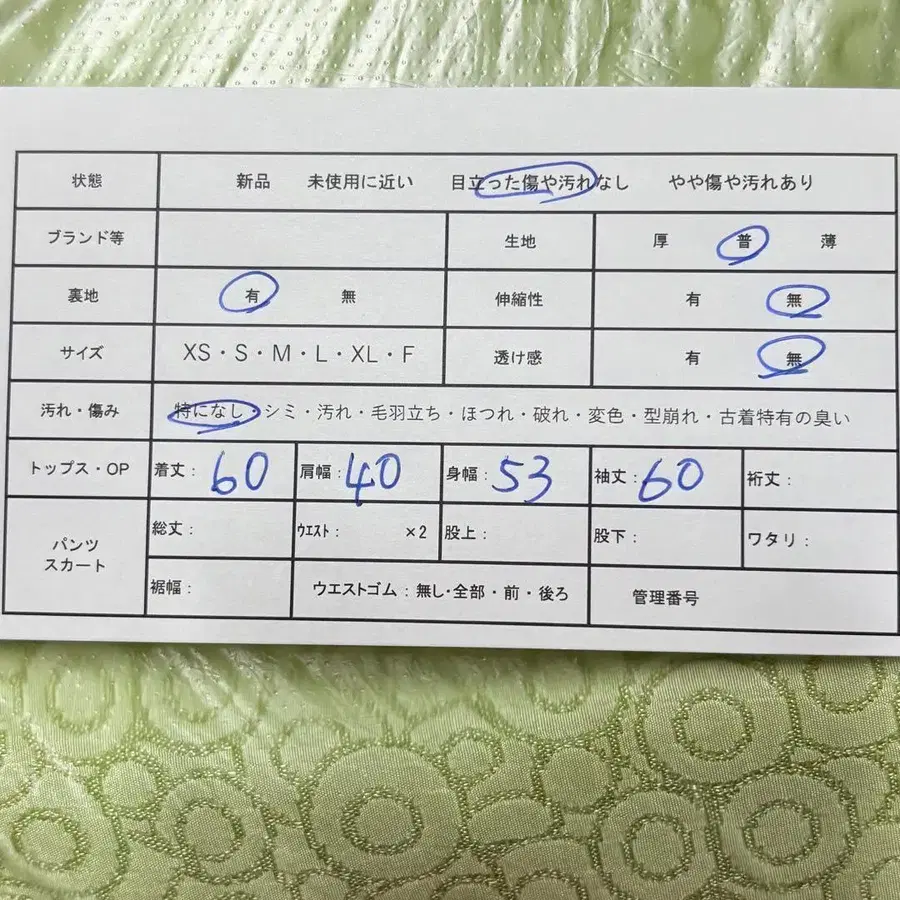 状態 新品 未使用に近い 目立った傷や汚れなし やや傷や汚れあり
ブランド等 生地 厚 普 薄
裏地 有 無 伸縮性 有 無
サイズ XS・S・M・L・XL・F 透け感 有 無
汚れ・傷み 特になし・シミ・汚れ・毛羽立ち・ほつれ・破れ・変色・型崩れ・古着特有の臭い
トップス・OP 着丈：60 肩幅：40 身幅：53 袖丈：60 裄丈：
パンツ
スカート
総丈： ｳｴｽﾄ： ×2 股上： 股下： ワタリ：
裾幅： ウエストゴム：無し・全部・前・後ろ 管理番号